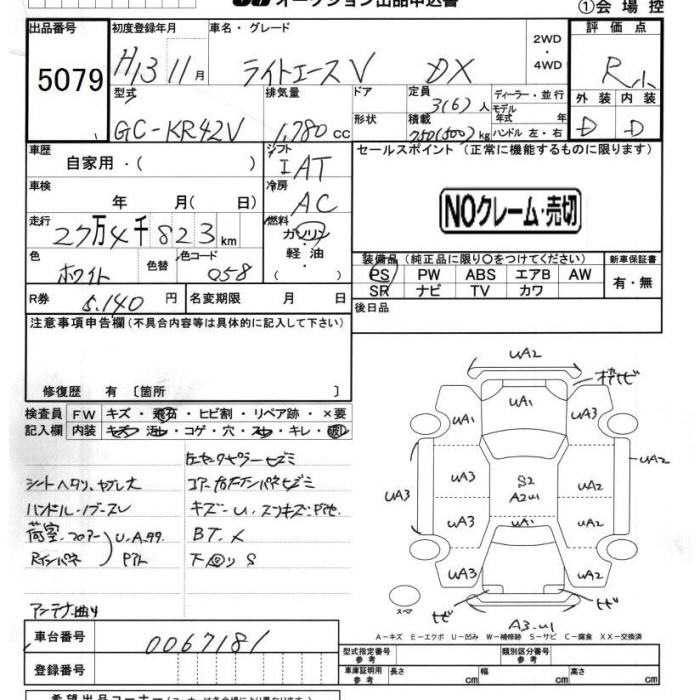 オークション出品申込書
①会場控
出品番号 初度登録年月 車名・グレード 2WD ・ 4WD 評価点
5079 H13 11月 ライトエースV DX R小
型式 排気量 ドア 定員 3(6)人 ディーラー・並行 外装 内装
モデル年式 年
GC-KR42V 1,780cc 形状 積載 750(500)kg ハンドル 左・右 D D
車歴 自家用・( ) シフト IAT セールスポイント (正常に機能するものに限ります)
車検 年 月( 日) 冷房 AC
NOクレーム・売切
走行 27万4千823km 燃料 ガソリン・軽油
色 ホワイト 色替 色コード 058
装備品(純正品に限り〇をつけてください) 新車保証書
PS PW ABS エアB AW 有・無
SR ナビ TV カワ
R券 5,140円 名変期限 月 日 後日品
注意事項申告欄(不具合内容等は具体的に記入して下さい)
修復歴 有 〔箇所 〕
検査員記入欄 FW キズ・飛石・ヒビ割・リペア跡・×要
内装 キズ・汚レ・コゲ・穴・スレ・キレ・
シートヘタリ、切レ大
ハンドル・ノブスレ
荷室・フロアー U.A.サビ
Rインパネ
アンテナ曲り
キズー U.
BT.×
下回り S
UA2
UA1 UA1 UA3
UA2
UA3 UA3 S2 A2U1 UA2
UA3 UA1 UA2
UA3 UA2
スペア
A3.U1
A-キズ E-エクボ U-凹み W-補修跡 S-サビ C-腐食 XX-交換済
車台番号 0067181
登録番号
型式指定番号 参考 類別区分番号 参考
車庫証明用 参考 長さ cm 幅 cm 高さ cm
希望出品コーナー